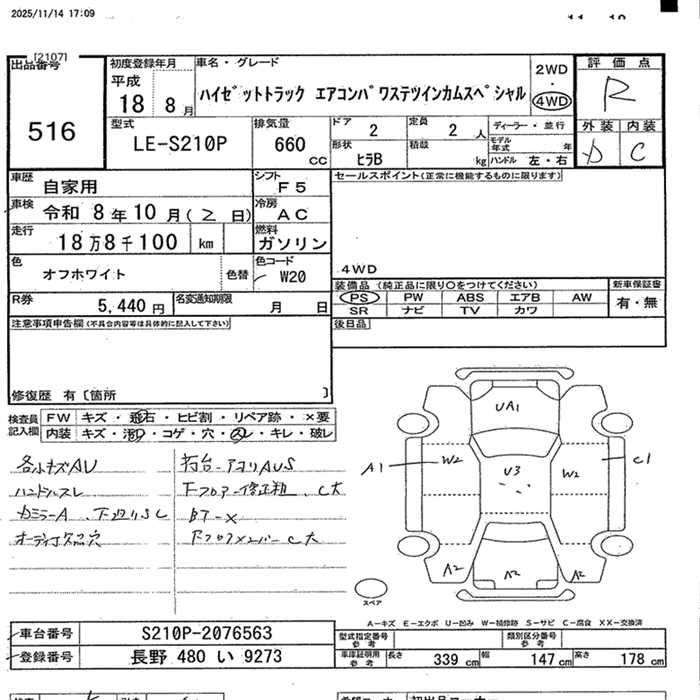 2025/11/14 17:09
[2107]
出品番号
516
初度登録年月
平成
18 8 月
車名・グレード
ﾊｲｾﾞｯﾄﾄﾗｯｸ ｴｱｺﾝﾊﾟﾜｽﾃﾂｲﾝｶﾑｽﾍﾟｼｬﾙ
2WD
・
4WD
評価点
R
外装 内装
D C
型式
LE-S210P
排気量
660
cc
ドア 2
定員 2 人
ディーラー・並行
モデル年式 年
形状 ﾋﾗB
積載 kg
ハンドル 左・右
車歴
自家用
シフト
F5
車検
令和 8 年 10 月( 2 日)
冷房
AC
走行
18 万 8 千 100 km
燃料
ガソリン
色
オフホワイト
色替
色コード
W20
R券
5,440 円
名変通知期限
月 日
セールスポイント(正常に機能するものに限ります)
4WD
装備品 (純正品に限り○をつけてください)
PS PW ABS エアB AW
SR ナビ TV カワ
新車保証書
有・無
後日品
注意事項申告欄(不具合内容等は具体的に記入して下さい)
修復歴 有〔箇所 〕
検査員記入欄
FW キズ・飛石・ヒビ割・リペア跡・×要
内装 キズ・汚れ・コゲ・穴・スレ・キレ・破レ
各小キズAU
ハンドルスレ
カガミラーA、下廻りSC
オーディオ欠品穴
荷台-アオリAUS
下フロアー修正粗、C大
BT-X
下フロアメンバーC大
UA1
A1
W2
U3
W2
C1
A2
A2
A2
スペア
A-キズ E-エクボ U-凹み W-補修跡 S-サビ C-腐食 XX-交換済
車台番号
S210P-2076563
登録番号
長野 480 い 9273
型式指定番号
参考
類別区分番号
参考
車庫証明用
参考
長さ 339 cm
幅 147 cm
高さ 178 cm